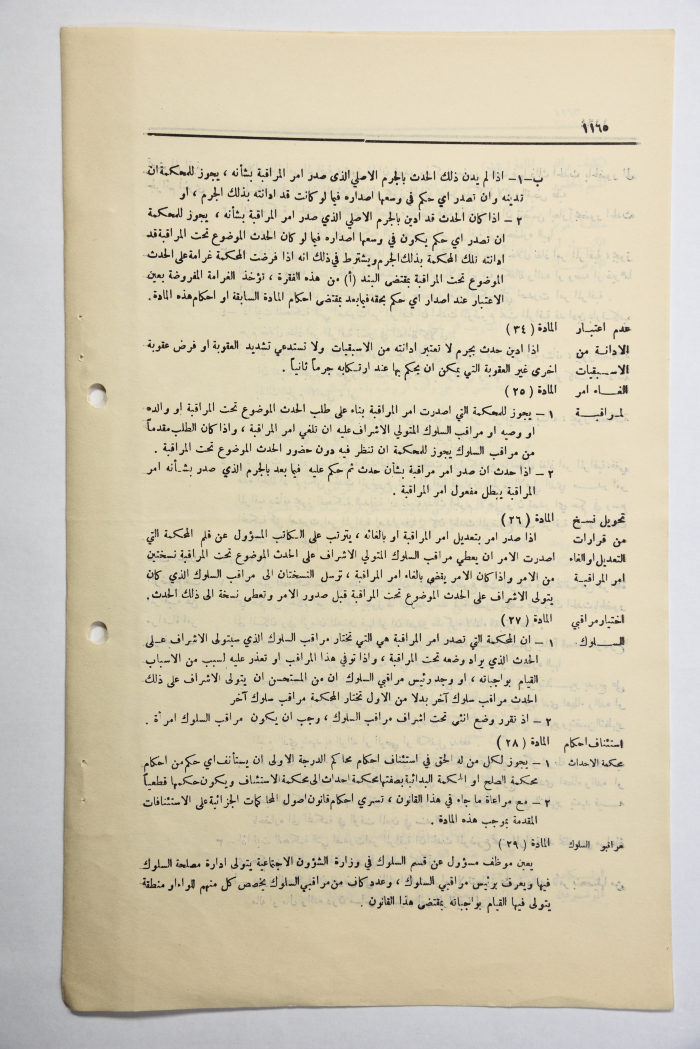 ١١٦٥
ب—١— اذا لم يدن ذلك الحدث بالجرم الاصلي الذى صدر امر المراقبة بشأنه ، يجوز للمحكمة ان
تدينه وان تصدر اي حكم في وسعها اصداره فيما لو كانت قد ادانته بذلك الجرم ، او
٢ — اذا كان الحدث قد أدين بالجرم الاصلي الذي صدر امر المراقبة بشأنه ، يجوز للمحكمة
ان تصدر اي حكم يكون في وسعها اصداره فيما لو كان الحدث الموضوع تحت المراقبة قد
ادانته تلك المحكمة بذلك الجرم ويشترط في ذلك انه اذا فرضت المحكمة غرامة على الحدث
الموضوع تحت المراقبة بمقتضى البند (أ) من هذه الفقرة ، تؤخذ الغرامة المفروضة بعين
الاعتبار عند اصدار اي حكم بحقه فيما بعد بمقتضى احكام المادة السابقة او احكام هذه المادة.
عدم اعتبار المادة (٣٤)
الادانة من اذا ادين حدث بجرم لا تعتبر ادانته من الاسبقيات ولا تستدعي تشديد العقوبة او فرض عقوبة
الاسبقيات اخرى غير العقوبة التي يمكن ان يحكم بها عند ارتكابه جرماً ثانياً .
الغاء امر المادة (٢٥)
لمراقبة ١ — يجوز للمحكمة التي اصدرت امر المراقبة بناء على طلب الحدث الموضوع تحت المراقبة او والده
او وصيه او مراقب السلوك المتولي الاشراف عليه ان تلغي امر المراقبة ، واذا كان الطلب مقدماً
من مراقب السلوك يجوز للمحكمة ان تنظر فيه دون حضور الحدث الموضوع تحت المراقبة .
٢ — اذا حدث ان صدر امر مراقبة بشأن حدث ثم حكم عليه فيما بعد بالجرم الذي صدر بشأنه امر
المراقبة يبطل مفعول امر المراقبة .
تحويل نسخ المادة (٢٦)
من قرارات اذا صدر امر بتعديل امر المراقبة او بالغائه ، يترتب على الكاتب المسؤول عن قلم المحكمة التي
التعديل او الغاء اصدرت الامر ان يعطي مراقب السلوك المتولي الاشراف على الحدث الموضوع تحت المراقبة نسختين
امر المراقبة من الامر واذا كان الامر يقضي بالغاء امر المراقبة ، ترسل النسختان الى مراقب السلوك الذي كان
يتولى الاشراف على الحدث الموضوع تحت المراقبة قبل صدور الامر وتعطى نسخة الى ذلك الحدث.
اختيار مراقبي المادة (٢٧)
السلوك ١ — ان المحكمة التي تصدر امر المراقبة هي التي تختار مراقب السلوك الذي سيتولى الاشراف على
الحدث الذي يراد وضعه تحت المراقبة ، واذا توفي هذا المراقب او تعذر عليه لسبب من الاسباب
القيام بواجباته ، او وجد رئيس مراقبي السلوك ان من المستحسن ان يتولى الاشراف على ذلك
الحدث مراقب سلوك آخر بدلا من الاول تختار المحكمة مراقب سلوك آخر
٢ — اذ تقرر وضع انثى تحت اشراف مراقب السلوك ، وجب ان يكون مراقب السلوك امرأة .
استئناف احكام المادة (٢٨)
محكمة الاحداث ١ — يجوز لكل من له الحق في استئناف احكام محاكم الدرجة الاولى ان يستأنف اي حكم من احكام
محكمة الصلح او المحكمة البدائية بصفتها محكمة احداث الى محكمة الاستئناف ويكون حكمها قطعياً
٢ — مع مراعاة ما جاء في هذا القانون ، تسري احكام قانون اصول المحاكمات الجزائية على الاستئنافات
المقدمة بموجب هذه المادة .
مراقبو السلوك المادة (٢٩)
يعين موظف مسؤول عن قسم السلوك في وزارة الشؤون الاجتماعية يتولى ادارة مصلحة السلوك
فيها ويعرف برئيس مراقبي السلوك ، وعدد كاف من مراقبي السلوك يخصص كل منهم للواء او منطقة
يتولى فيها القيام بواجباته بمقتضى هذا القانون .